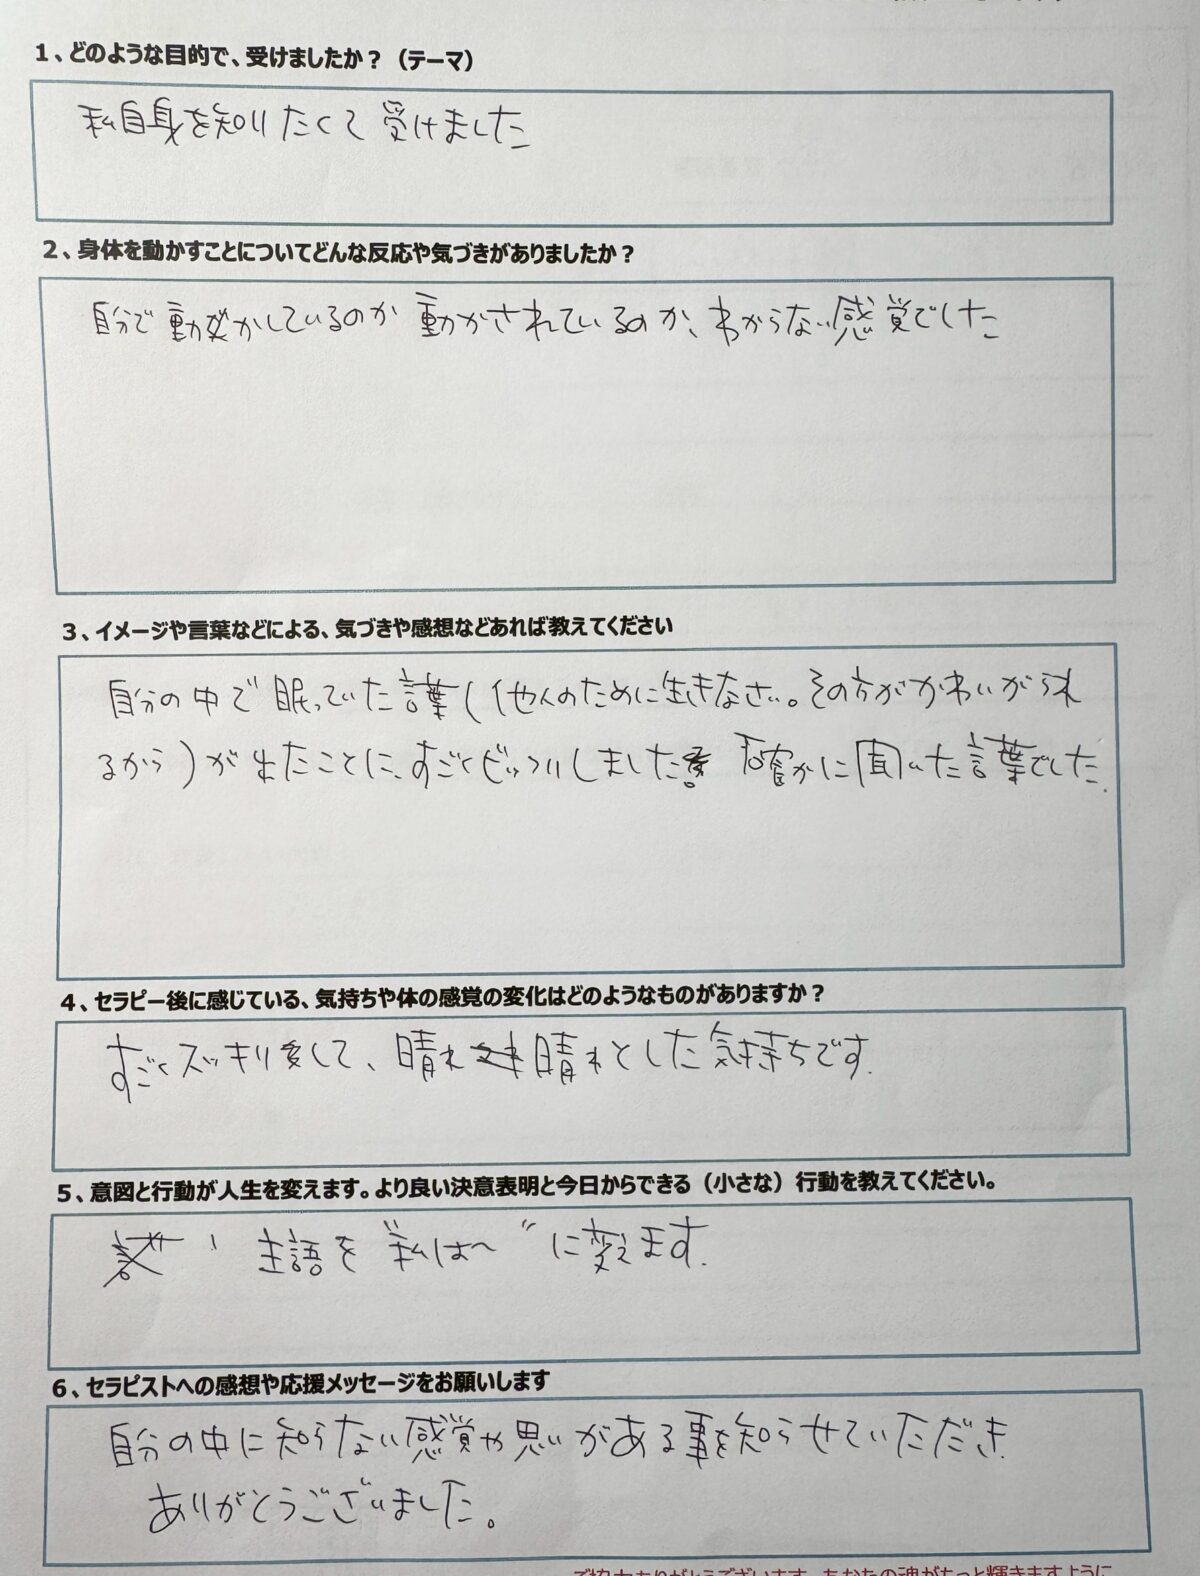 1、どのような目的で、受けましたか？（テーマ）
私自身を知りたくて受けました
2、身体を動かすことについてどんな反応や気づきがありましたか？
自分で動かしているのか動かされているのか、わからない感覚でした
3、イメージや言葉などによる、気づきや感想などあれば教えてください
自分の中で眠っていた言葉（他人のために生きなさい。その方がかわいがられ
るから）が出たことに、すごくビックリしました。確かに聞いた言葉でした.
4、セラピー後に感じている、気持ちや体の感覚の変化はどのようなものがありますか？
すごくスッキリして、晴れ晴れとした気持ちです.
5、意図と行動が人生を変えます。より良い決意表明と今日からできる（小さな）行動を教えてください。
主語を"私は〜"に変えます.
6、セラピストへの感想や応援メッセージをお願いします
自分の中に知らない感覚や思いがある事を知らせていただき
ありがとうございました。
ご協力ありがとうございます。あなたの魂がもっと輝きますように